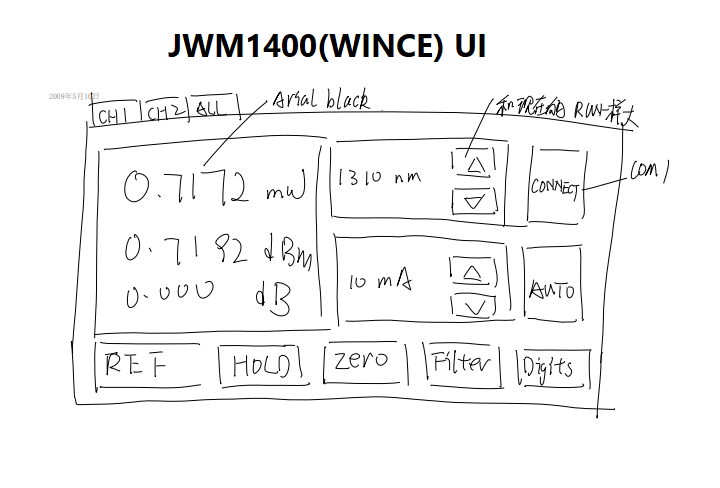 JWM1400(WINCE) UI
2009年5月10日
CH1 CH2 ALL
Arial black
和现在的RUN一样大
0.7172 mW
0.7192 dBm
0.000 dB
1310 nm
CONNECT
COM1
10 mA
AUTO
REF HOLD zero Filter Digits